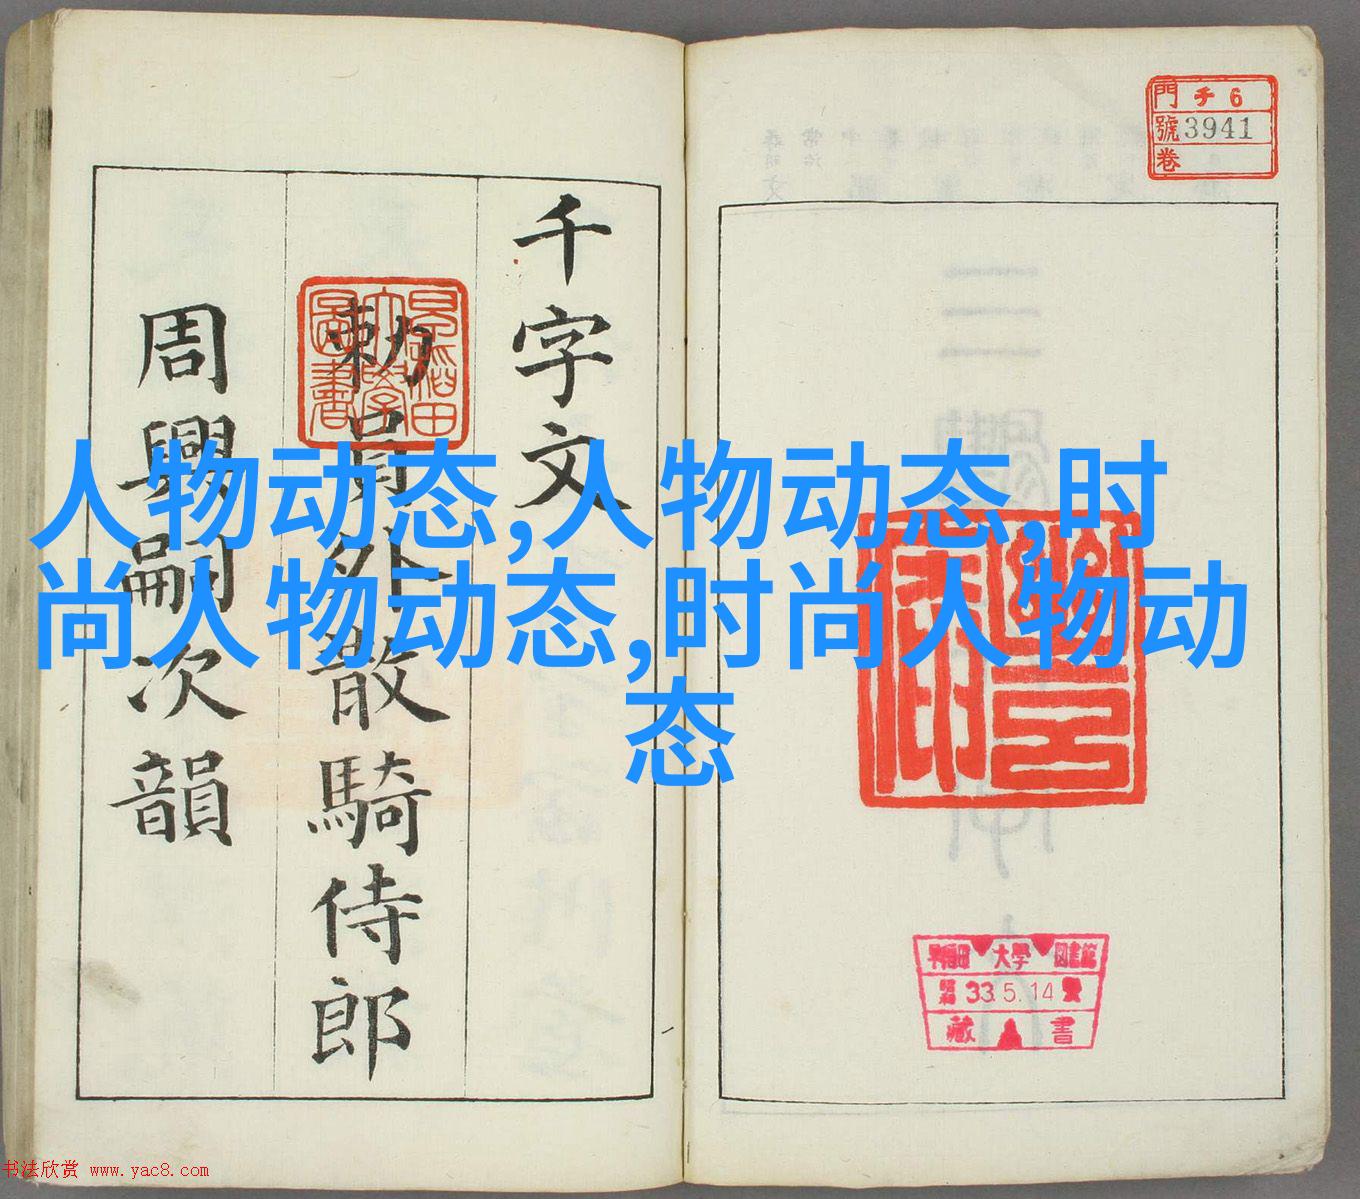 千字文
勅員外散騎侍郎
周興嗣次韻
門 チ 6
號 3941
卷
早稲田大學圖書
早稲田大學圖書館
昭和 33.5.14
藏書
人物动态,人物动态,时
尚人物动态,时尚人物动
态
书法欣赏 www.yac8.com